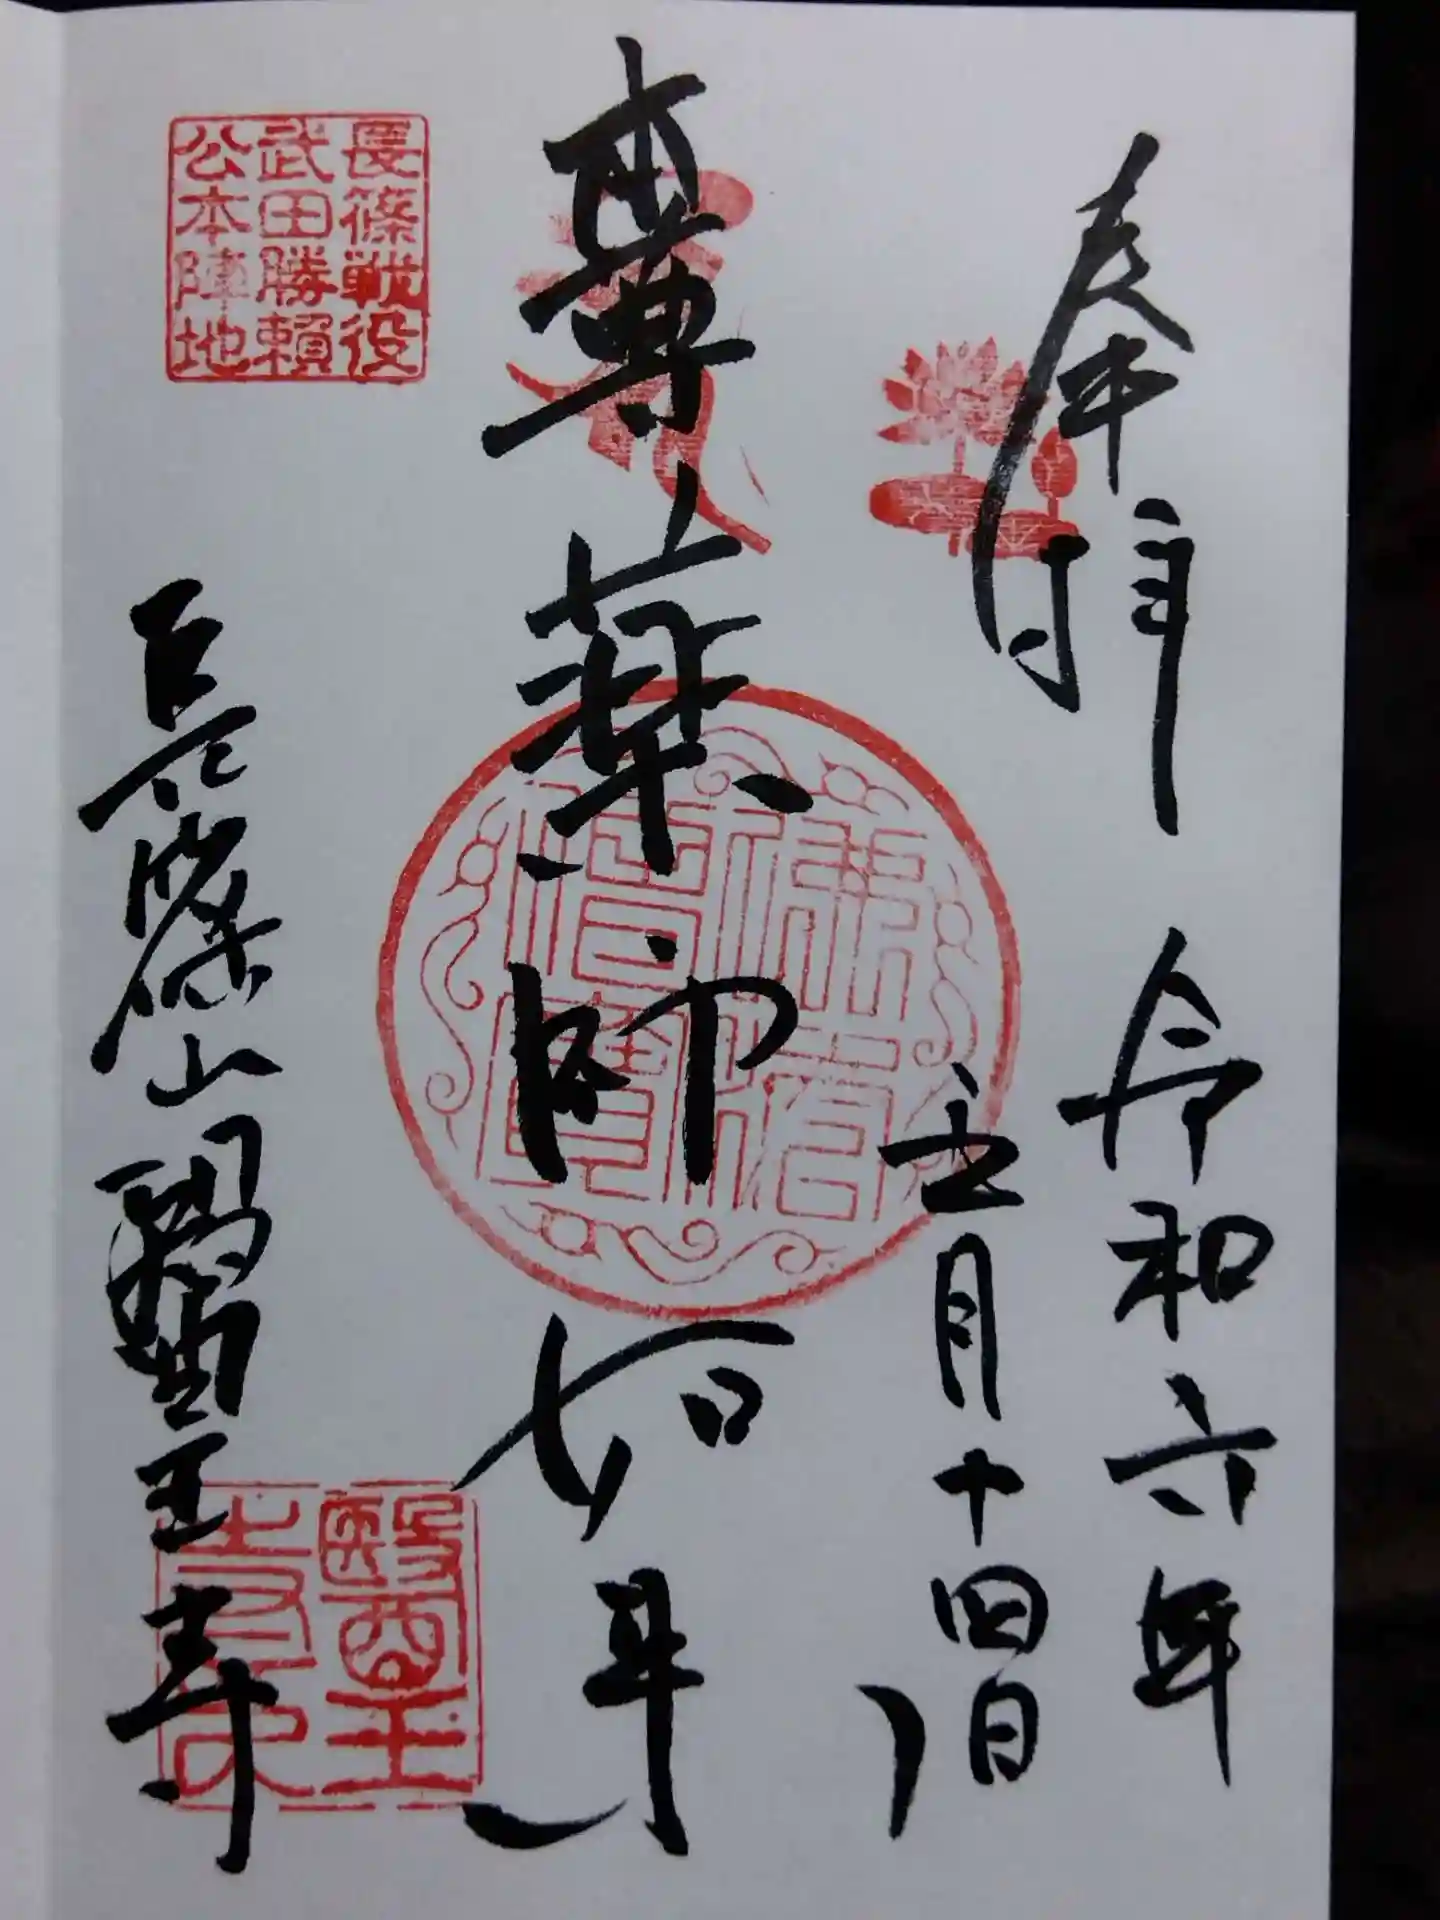 奉拝
令和六年
五月十四日
本尊薬師如来
長篠山醫王寺
長篠戦役
武田勝頼
公本陣地
佛法僧寶
醫王